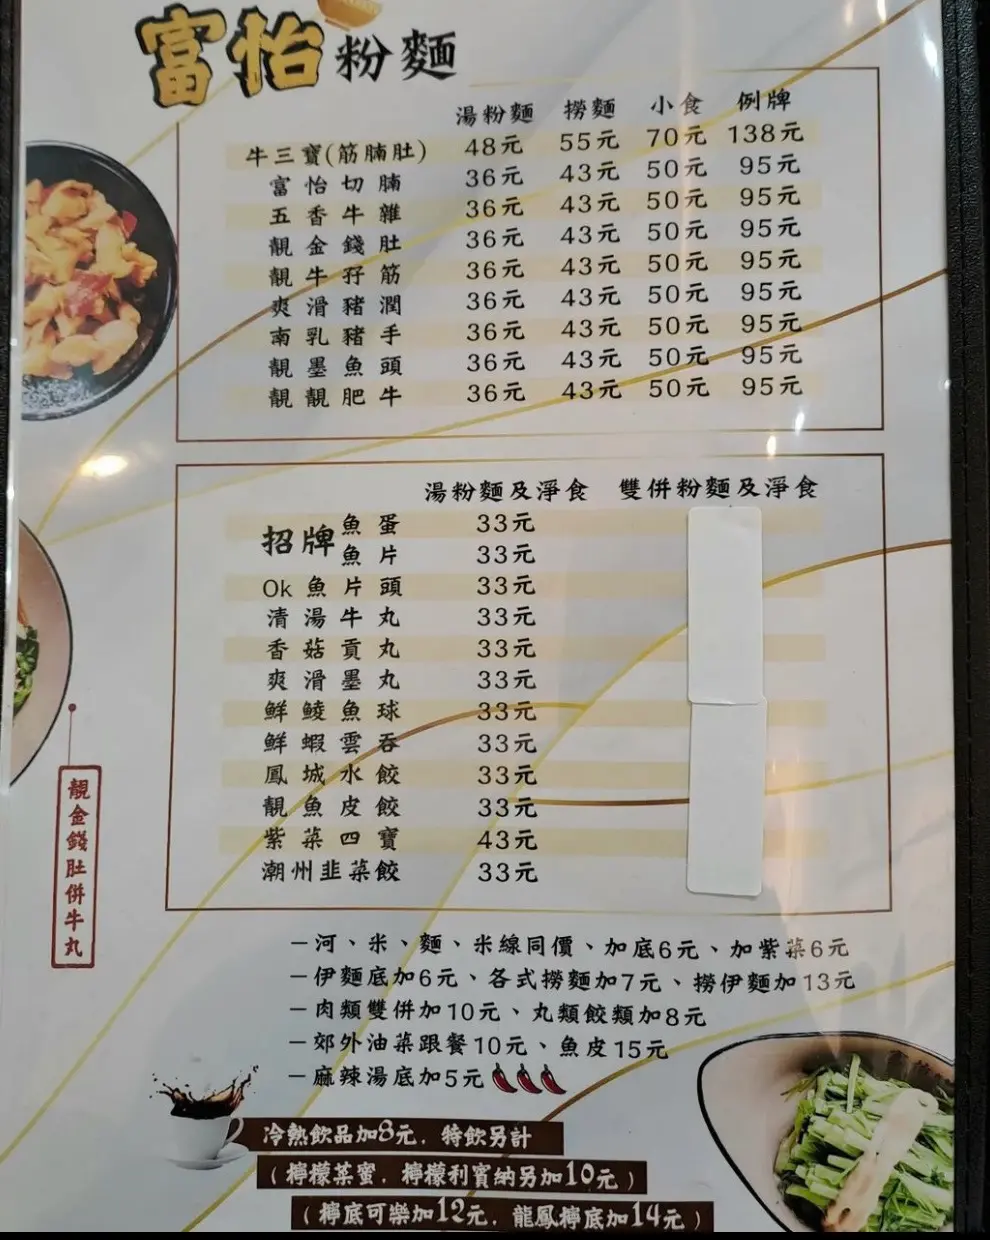 富怡粉麵
湯粉麵 撈麵 小食 例牌
牛三寶(筋腩肚) 48元 55元 70元 138元
富怡切腩 36元 43元 50元 95元
五香牛雜 36元 43元 50元 95元
靚金錢肚 36元 43元 50元 95元
靚牛孖筋 36元 43元 50元 95元
爽滑豬潤 36元 43元 50元 95元
南乳豬手 36元 43元 50元 95元
靚墨魚頭 36元 43元 50元 95元
靚靚肥牛 36元 43元 50元 95元
湯粉麵及淨食 雙併粉麵及淨食
招牌魚蛋 33元
魚片 33元
Ok魚片頭 33元
清湯牛丸 33元
香菇貢丸 33元
爽滑墨丸 33元
鮮鯪魚球 33元
鮮蝦雲吞 33元
鳳城水餃 33元
靚魚皮餃 33元
紫菜四寶 43元
潮州韭菜餃 33元
靚金錢肚併牛丸
－河、米、麵、米線同價、加底6元、加紫菜6元
－伊麵底加6元、各式撈麵加7元、撈伊麵加13元
－肉類雙併加10元、丸類餃類加8元
－郊外油菜跟餐10元、魚皮15元
－麻辣湯底加5元
冷熱飲品加8元．特飲另計
（檸檬菜蜜．檸檬利賓納另加10元）
（檸底可樂加12元．龍鳳檸底加14元）